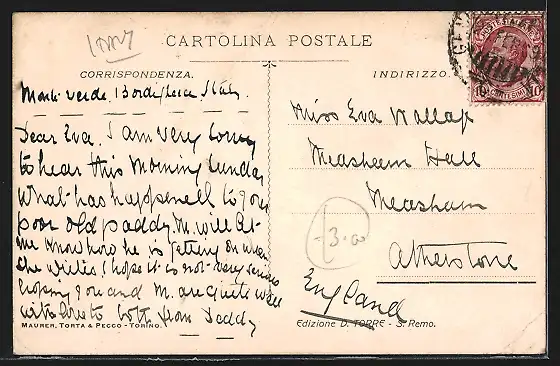 CARTOLINA POSTALE
CORRISPONDENZA.
Monte verde, Bordighera Italy
Dear Eva, I am very sorry
to hear this morning Sunday
what has happened to your
poor old paddy M. will let
me know how he is getting on when
she writes I hope it is not very serious
hoping you and M. are quite well
with love to both from Daddy
MAURER, TORTA & PECCO - TORINO.
INDIRIZZO.
POSTE ITALIANE
10 CENTESIMI 10
Miss Eva Wallap
Measham Hall
Measham
Atherstone
England
3.00
Edizione D. TORRE - S. Remo.